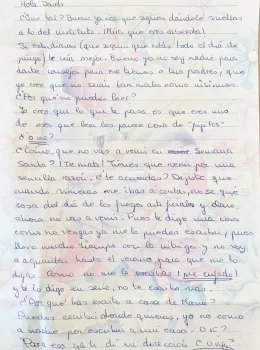 Hola David:
¿Que tal? Bueno ya veo que sigues dándole vueltas
a lo del instituto. ¡Mira que eres
Si estudiaras (que aquí que estás todo el día de
) te iría mejor. Bueno yo no soy nadie para
darte consejos para eso tienes a tus padres, que
yo creo que no serán tan malos como
¿Por qué no puedes leer?
Yo creo que lo que te pasa es que eres uno
de esos que leer les parece cosa de "pijotos"
¿Cómo, que no vas a venir en Semana
Santa? ¡Te mato! Tienes que venir por una
sencilla razón, ¿te acuerdas? Dijiste que
cuando vinieras me ibas a contar, no se qué
cosa del día de los juegos artificiales y claro,
ahora no vas a venir. Pues te digo una cosa
como no vengas ya me lo puedes escribir, pues
llevo mucho tiempo con la intriga y no voy
a aguantar hasta el verano para que me lo
digas. Como no me lo escribas ¡me enfado!
y te lo digo en serio, no te escribo más.
¿Por qué has escrito a casa de
Puedes escribir donde quieras, yo no como
a nadie por escribir a mi casa. O.K?
Para eso ya te dí mi dirección